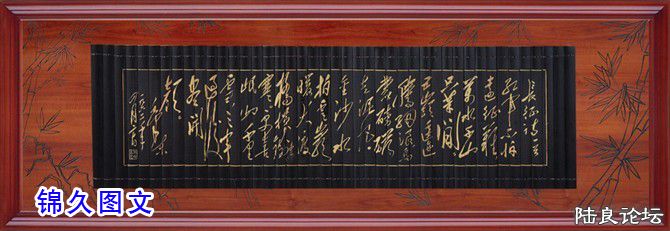 长征诗一首
红军不怕
远征难
万水千山
只等闲
五岭逶迤
腾细浪乌
蒙磅礴
走泥丸
金沙水
拍云崖
暖大渡
桥横铁
索寒更喜
岷山千里
雪三军
过后
尽开
颜
毛泽东
锦久图文
陆良论坛